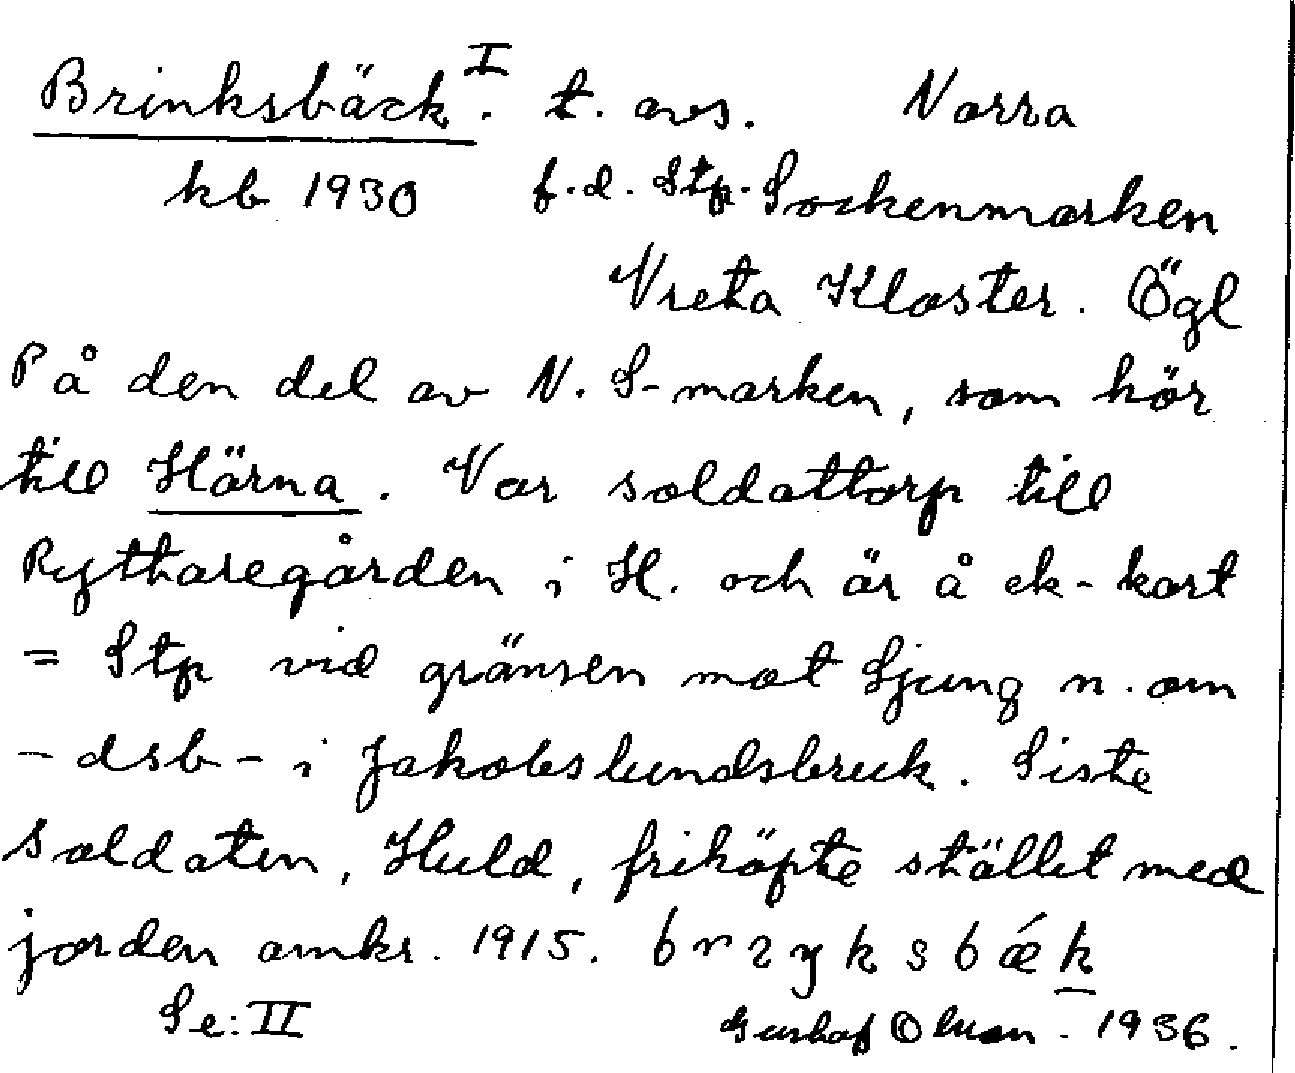 Brinksbäck I. t. avs. Norra
kb 1930 f.d. Stp. Sockenmarken
Vreta Kloster. Ögl
På den del av N. S-marken, som hör
till Härna. Var soldattorp till
Ryttaregården i H. och är å ek-kart
= Stp vid gränsen mot Ljung n. om
- dsb - i Jakobslundsbruk. Siste
soldaten, Huld, friköpte stället med
jorden omkr. 1915.
Se: II Gustaf Olsson. 1936.